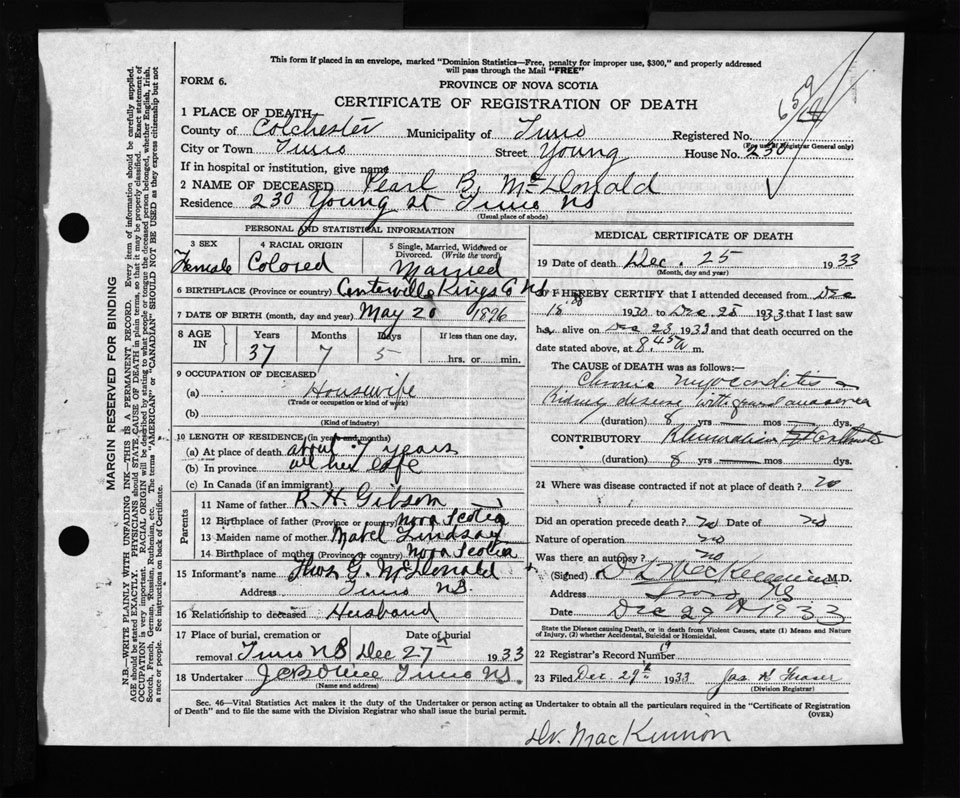 This form if placed in an envelope, marked "Dominion Statistics—Free, penalty for improper use, $300," and properly addressed
will pass through the Mail "FREE"
FORM 6.
PROVINCE OF NOVA SCOTIA
CERTIFICATE OF REGISTRATION OF DEATH
1 PLACE OF DEATH
County of Colchester Municipality of Truro Registered No.
(For use of Registrar General only)
City or Town Truro Street Young House No. 230
If in hospital or institution, give name
2 NAME OF DECEASED Pearl B. McDonald
Residence 230 Young st Truro NS
(Usual place of abode)
PERSONAL AND STATISTICAL INFORMATION
3 SEX 4 RACIAL ORIGIN 5 Single, Married, Widowed or
Divorced. (Write the word)
Female Colored Married
6 BIRTHPLACE (Province or country) Centerville Kings Co NS
7 DATE OF BIRTH (month, day and year) May 20 1896
8 AGE IN Years Months Days If less than one day,
37 7 5 hrs. or min.
9 OCCUPATION OF DECEASED
(a) Housewife
(Trade or occupation or kind of work)
(b)
(Kind of industry)
10 LENGTH OF RESIDENCE (in years and months)
(a) At place of death about 7 years
(b) In province all her life
(c) In Canada (if an immigrant)
Parents
11 Name of father R. H. Gibson
12 Birthplace of father (Province or country) Nova Scotia
13 Maiden name of mother Mabel Lindsay
14 Birthplace of mother (Province or country) Nova Scotia
15 Informant's name Thos G. McDonald
Address Truro NS.
16 Relationship to deceased Husband
17 Place of burial, cremation or Date of burial
removal Truro NS Dec 27th 1933
18 Undertaker Truro NS.
(Name and address)
MEDICAL CERTIFICATE OF DEATH
19 Date of death Dec. 25 1933
(Month, day and year)
20 I HEREBY CERTIFY that I attended deceased from Dec
18 1930 to Dec 25 1933 that I last saw
her alive on Dec 23 1933 and that death occurred on the
date stated above, at 8.45 a m.
The CAUSE of DEATH was as follows:—
Chronic myocarditis &
kidney disease with general anasarca
(duration) 8 yrs mos dys.
CONTRIBUTORY Rheumatism
(duration) 8 yrs mos dys.
21 Where was disease contracted if not at place of death? no
Did an operation precede death? no Date of no
Nature of operation no
Was there an autopsy? no
(Signed) D L MacKinnon M.D.
Address Truro NS
Date Dec 29th 1933
State the Disease causing Death, or in death from Violent Causes, state (1) Means and Nature
of Injury, (2) whether Accidental, Suicidal or Homicidal.
22 Registrar's Record Number
23 Filed Dec 29th 1933 Jas. H Fraser
(Division Registrar)
Sec. 46—Vital Statistics Act makes it the duty of the Undertaker or person acting as Undertaker to obtain all the particulars required in the "Certificate of Registration
of Death" and to file the same with the Division Registrar who shall issue the burial permit.
(OVER)
Dr. MacKinnon
MARGIN RESERVED FOR BINDING
N.B.—WRITE PLAINLY WITH UNFADING INK—THIS IS A PERMANENT RECORD. Every item of information should be carefully supplied.
AGE should be stated EXACTLY. PHYSICIANS should STATE CAUSE OF DEATH in plain terms, so that it may be properly classified. Exact statement of
OCCUPATION is very important. RACIAL ORIGIN will be described by stating to what people or tongue the deceased person belonged, whether English, Irish,
Scotch, French, German, Russian, Ruthenian, etc. The terms "AMERICAN" or "CANADIAN" SHOULD NOT BE USED as they express citizenship but not
a race or people. See instructions on back of Certificate.